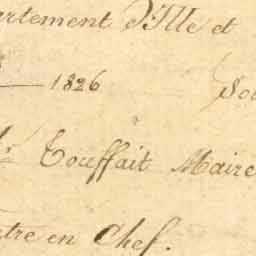 artement D'Ille et
1826 So
Touffait Maire
tre en Chef.